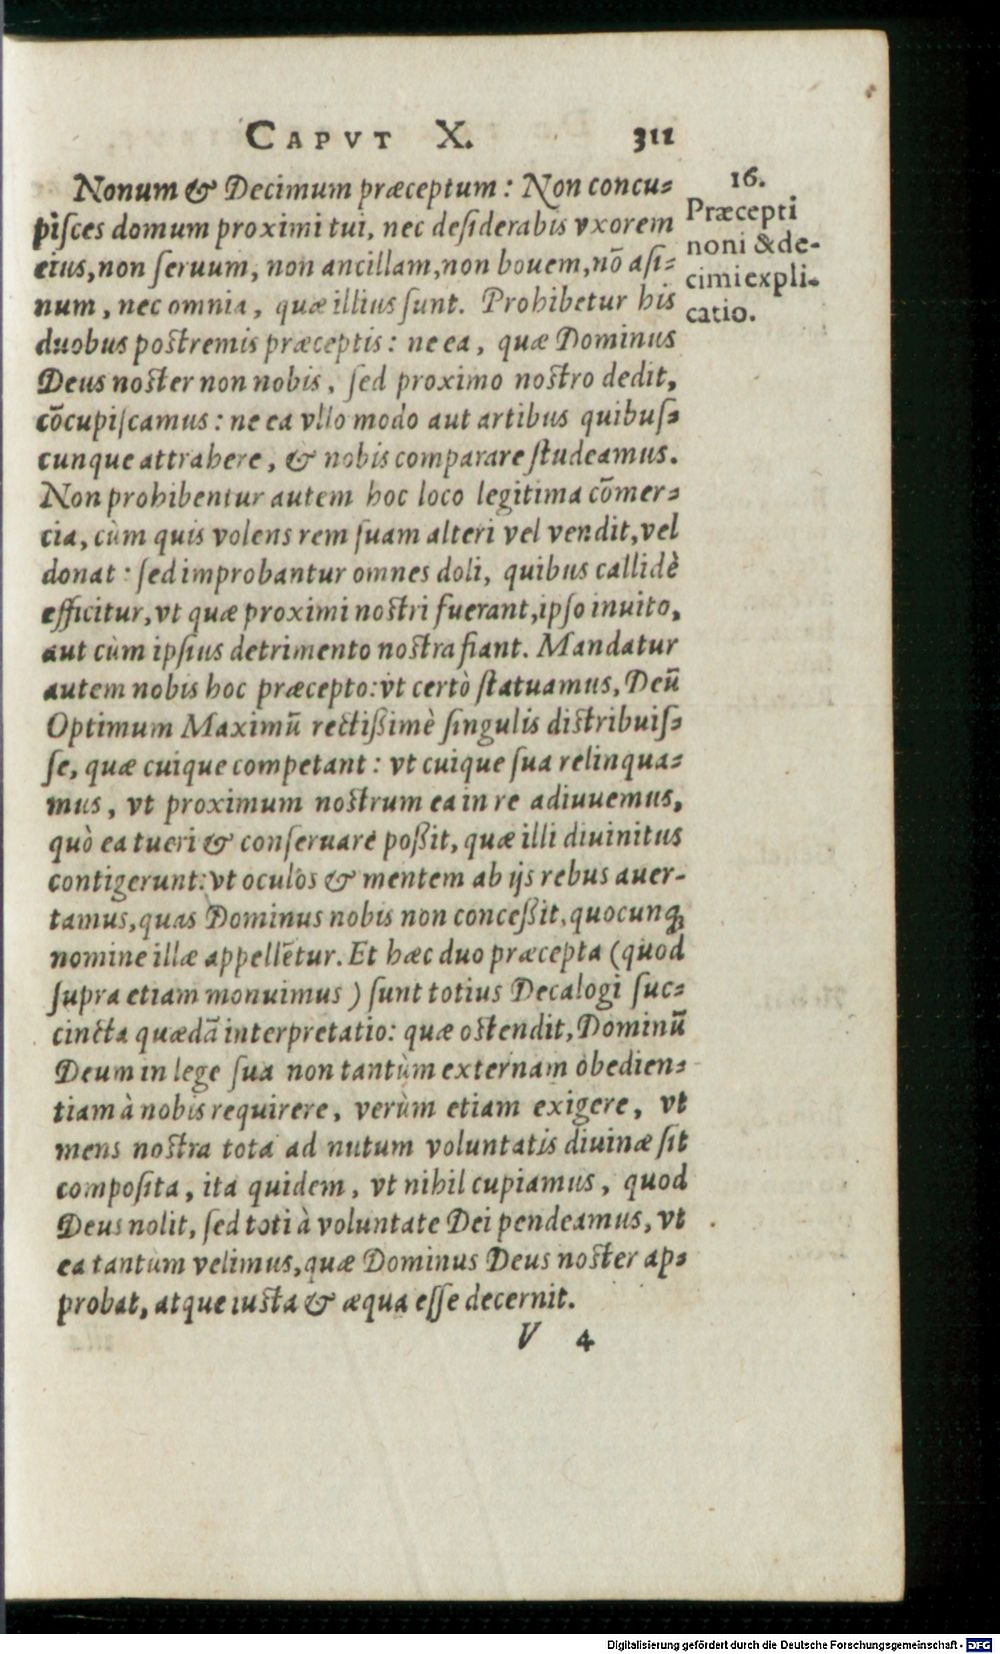 CAPVT X. 311
Nonum & Decimum præceptum: Non concu-
piſces domum proximi tui, nec deſiderabis vxorem
eius, non ſeruum, non ancillam, non bouem, nō aſi-
num, nec omnia, quæ illius ſunt. Prohibetur his
duobus poſtremis præceptis: ne ea, quæ Dominus
Deus noſter non nobis, ſed proximo noſtro dedit,
cōcupiſcamus: ne ea vllo modo aut artibus quibuſ-
cunque attrahere, & nobis comparare ſtudeamus.
Non prohibentur autem hoc loco legitima cōmer-
cia, cùm quis volens rem ſuam alteri vel vendit, vel
donat: ſed improbantur omnes doli, quibus callidè
efficitur, vt quæ proximi noſtri fuerant, ipſo inuito,
aut cùm ipſius detrimento noſtra fiant. Mandatur
autem nobis hoc præcepto: vt certò ſtatuamus, Deū
Optimum Maximū rectißimè ſingulis diſtribuiſ-
ſe, quæ cuique competant: vt cuique ſua relinqua-
mus, vt proximum noſtrum ea in re adiuuemus,
quò ea tueri & conſeruare poßit, quæ illi diuinitus
contigerunt: vt oculos & mentem ab ijs rebus auer-
tamus, quas Dominus nobis non conceßit, quocunq;
nomine illæ appellētur. Et hæc duo præcepta (quod
ſupra etiam monuimus) ſunt totius Decalogi ſuc-
cincta quædā interpretatio: quæ oſtendit, Dominū
Deum in lege ſua non tantùm externam obedien-
tiam à nobis requirere, verùm etiam exigere, vt
mens noſtra tota ad nutum voluntatis diuinæ ſit
compoſita, ita quidem, vt nihil cupiamus, quod
Deus nolit, ſed toti à voluntate Dei pendeamus, vt
ea tantum velimus, quæ Dominus Deus noſter ap-
probat, atque iuſta & æqua eſſe decernit.
V 4
16.
Præcepti
noni & de-
cimi expli-
catio.
Digitalisierung gefördert durch die Deutsche Forschungsgemeinschaft - DFG